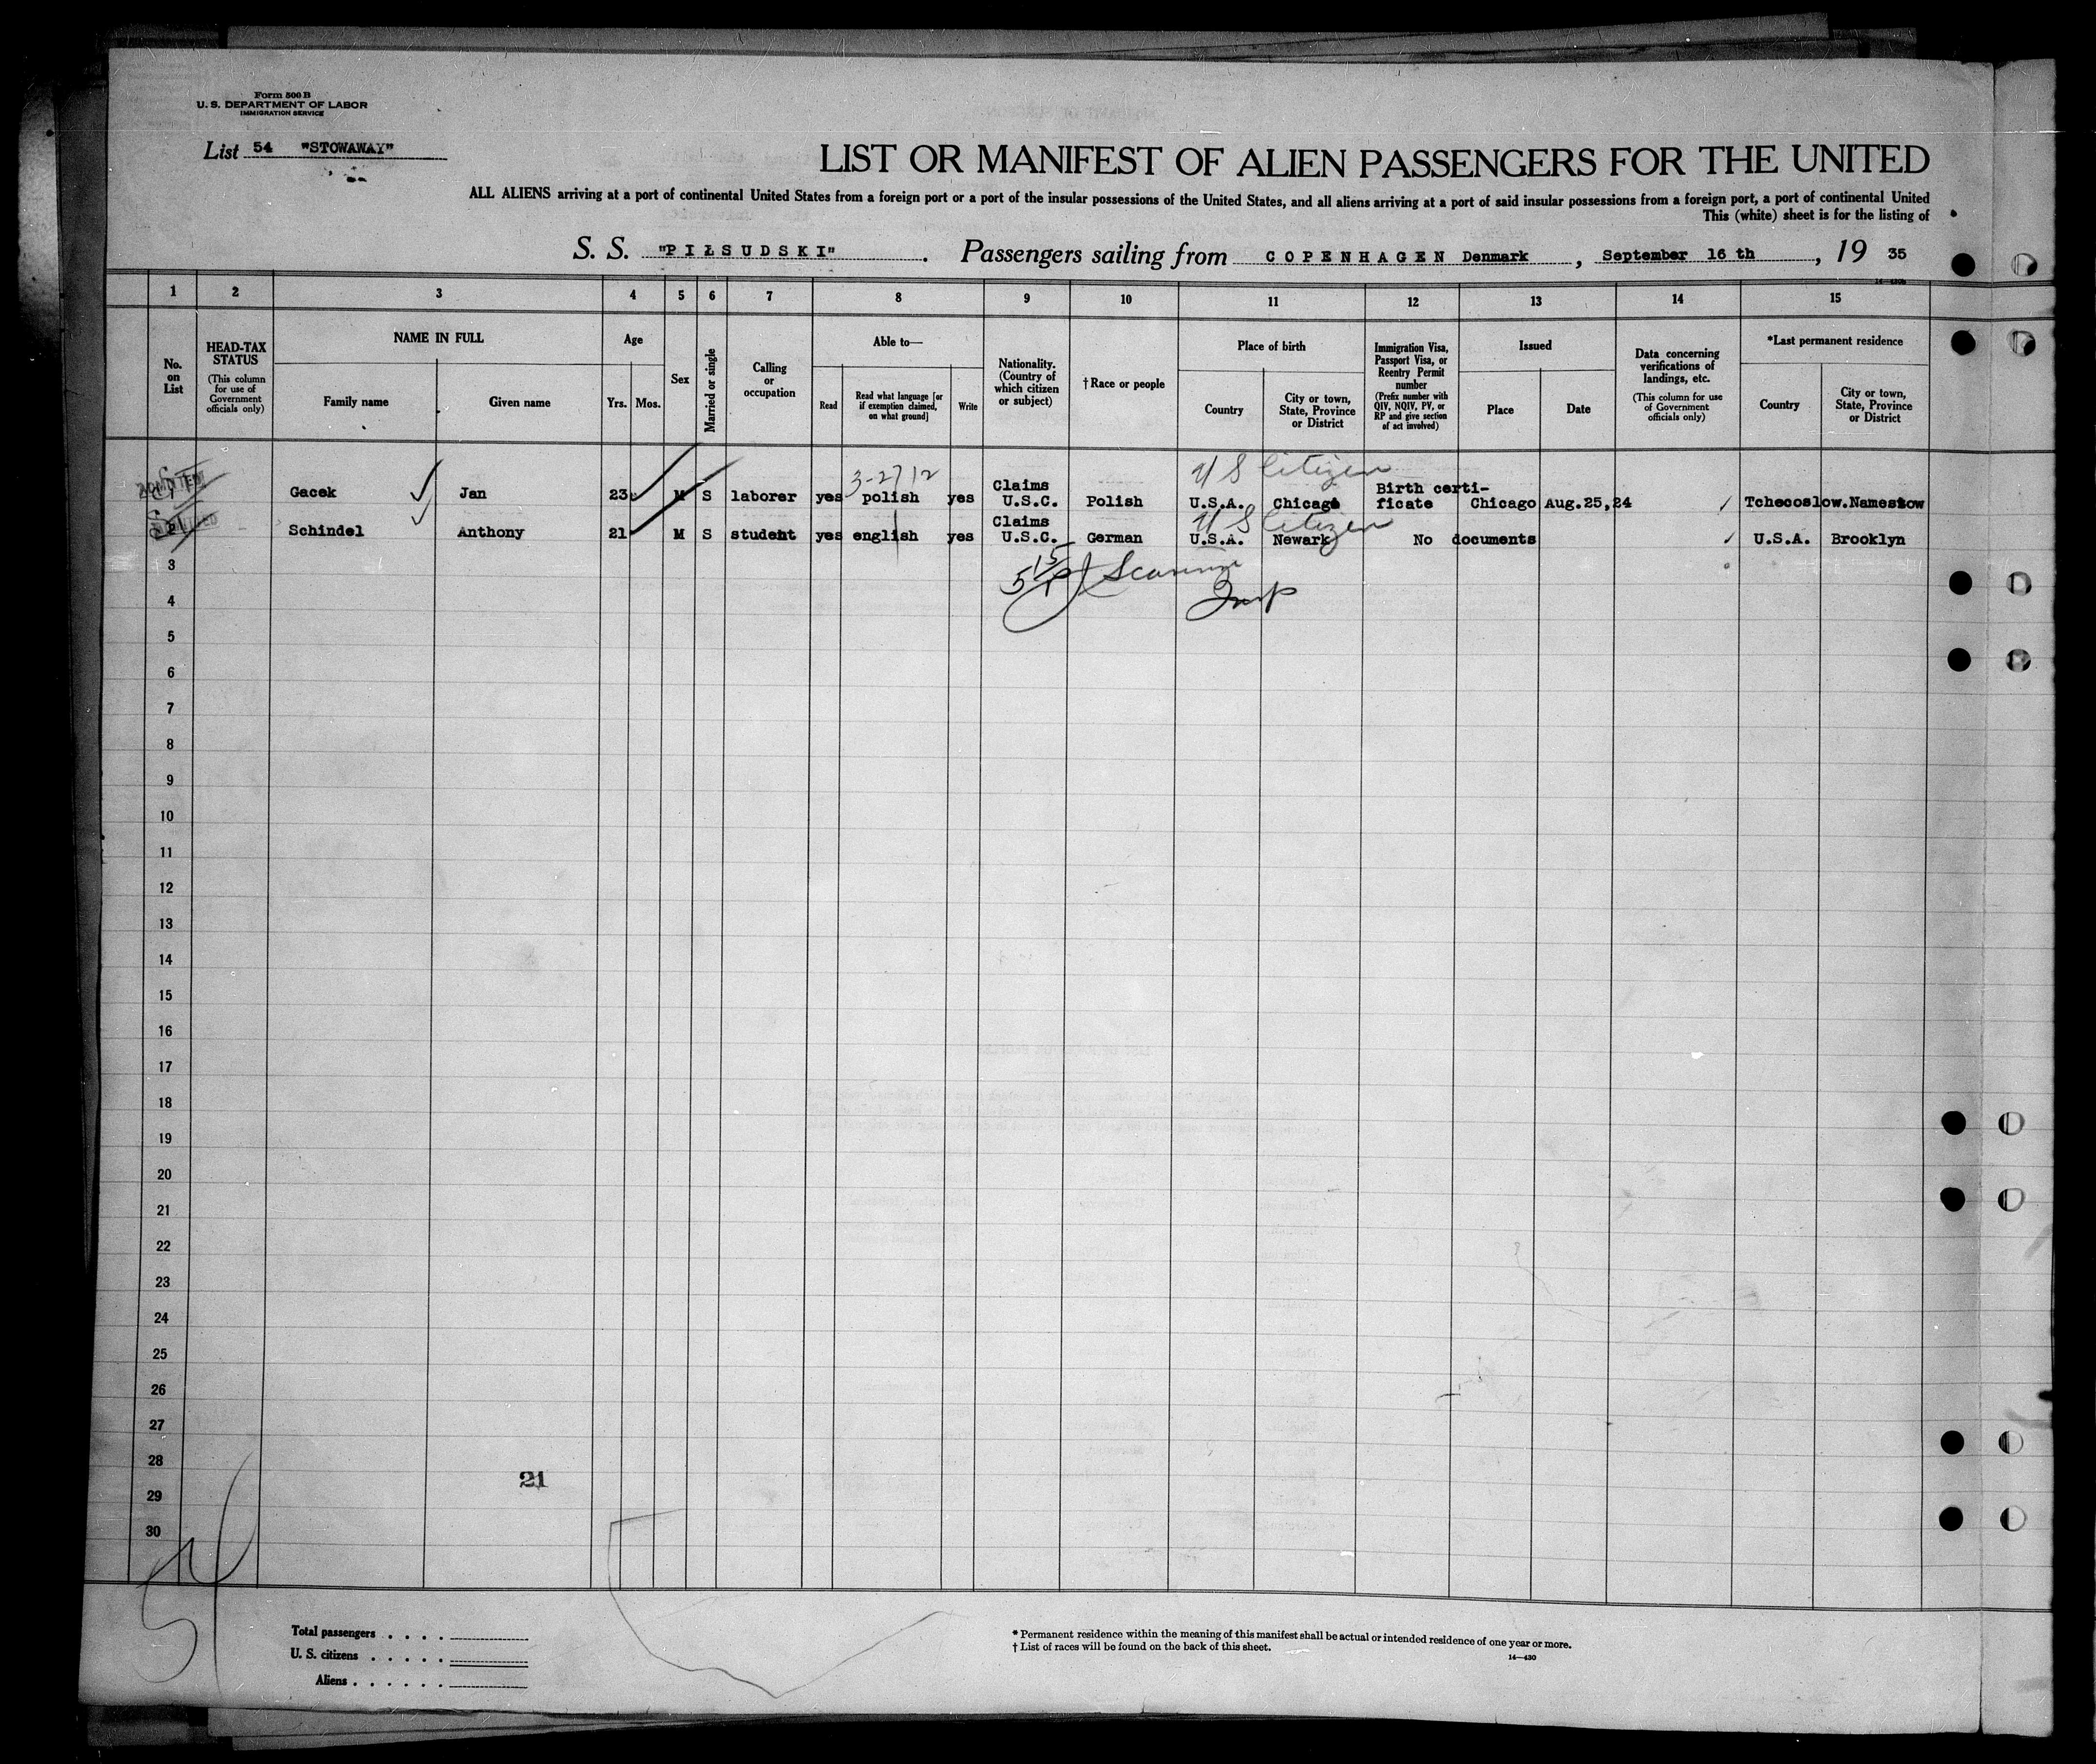 Form 500 B
U. S. DEPARTMENT OF LABOR
IMMIGRATION SERVICE
List 54 "STOWAWAY"
LIST OR MANIFEST OF ALIEN PASSENGERS FOR THE UNITED
ALL ALIENS arriving at a port of continental United States from a foreign port or a port of the insular possessions of the United States, and all aliens arriving at a port of said insular possessions from a foreign port, a port of continental United
This (white) sheet is for the listing of
S. S. "PIŁSUDSKI". Passengers sailing from COPENHAGEN Denmark, September 16 th, 19 35
1 2 3 4 5 6 7 8 9 10 11 12 13 14 15
No. on List
HEAD-TAX STATUS (This column for use of Government officials only)
NAME IN FULL
Family name Given name
Age
Yrs. Mos.
Sex
Married or single
Calling or occupation
Able to—
Read Read what language [or if exemption claimed, on what ground] Write
Nationality. (Country of which citizen or subject)
†Race or people
Place of birth
Country City or town, State, Province or District
Immigration Visa, Passport Visa, or Reentry Permit number (Prefix number with QIV, NQIV, PV, or RP and give section of act involved)
Issued
Place Date
Data concerning verifications of landings, etc. (This column for use of Government officials only)
*Last permanent residence
Country City or town, State, Province or District
3-27 12 U S Citizen
Gacek Jan 23 M S laborer yes polish yes Claims U.S.C. Polish U.S.A. Chicago Birth certi-ficate Chicago Aug.25,24 Tchecoslow.Namestow
U S Citizen
Schindel Anthony 21 M S student yes english yes Claims U.S.C. German U.S.A. Newark No documents U.S.A. Brooklyn
3
4 Insp
5
6
7
8
9
10
11
12
13
14
15
16
17
18
19
20
21
22
23
24
25
26
27
28
21
29
30
54
Total passengers . . . .
U. S. citizens . . . . .
Aliens . . . . . .
* Permanent residence within the meaning of this manifest shall be actual or intended residence of one year or more.
† List of races will be found on the back of this sheet.
14—430